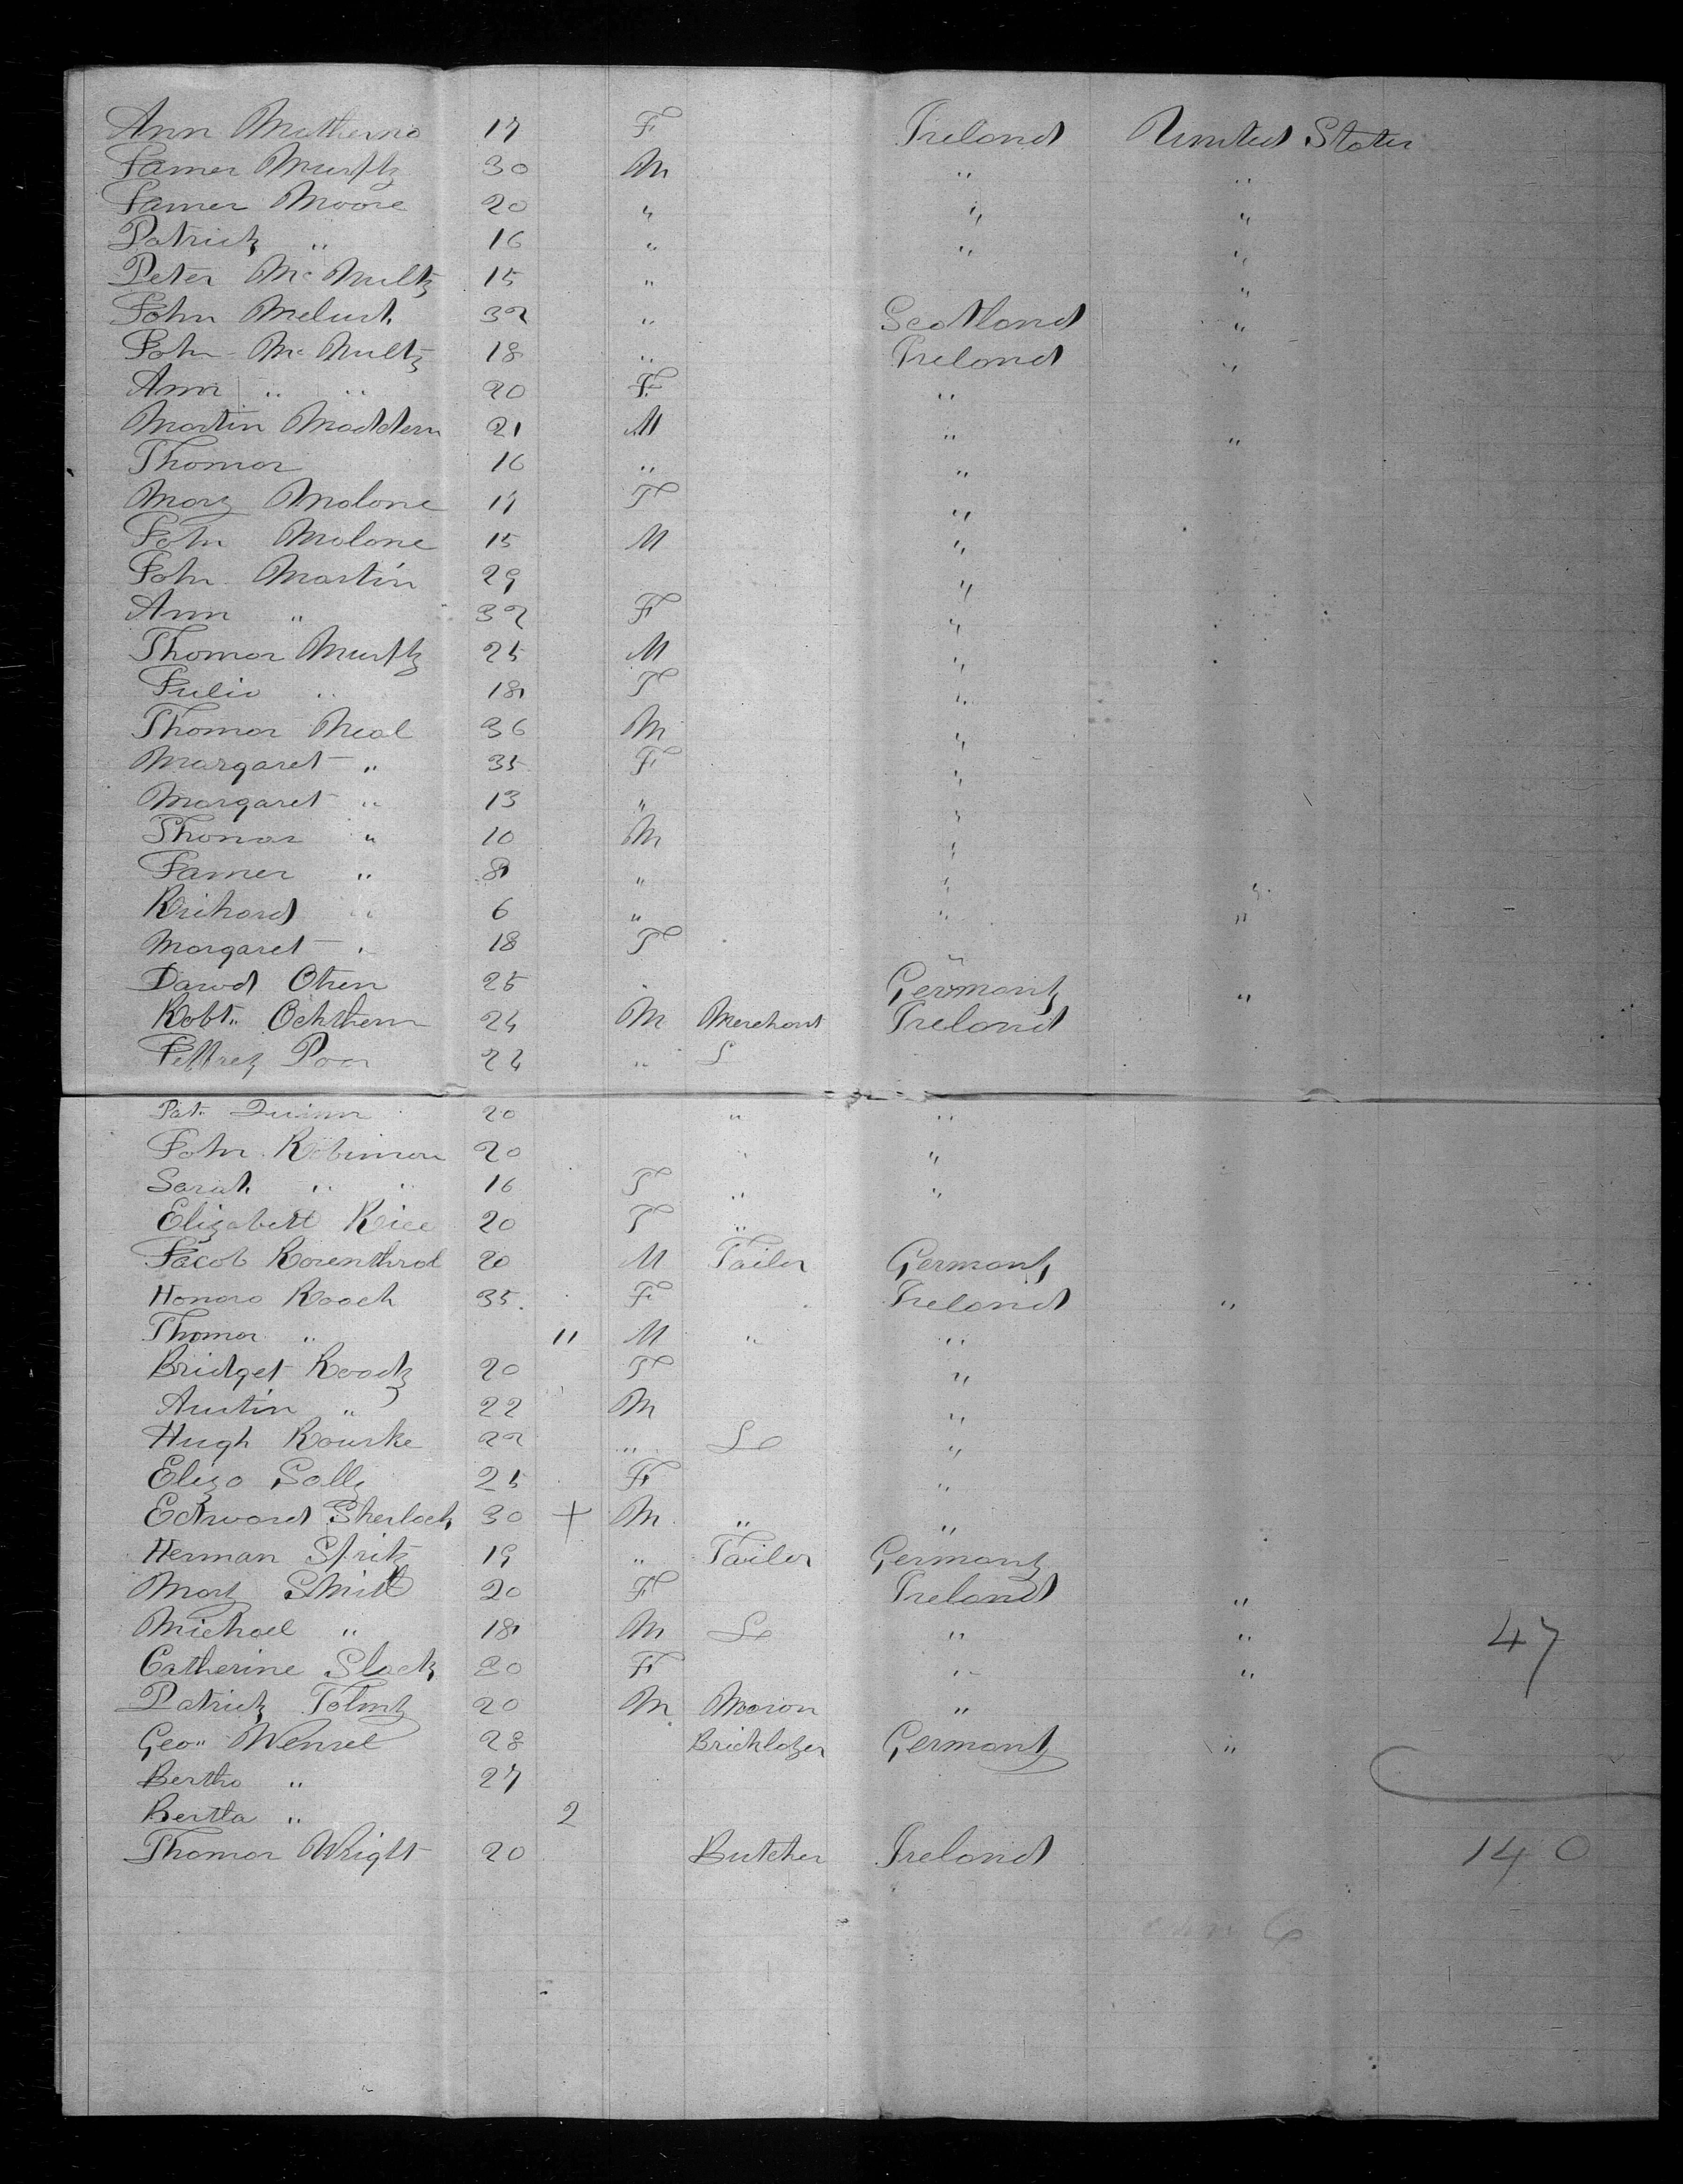 Ann 17 F Ireland United States
James Murphy 30 M " "
James Moore 20 " " "
Patrick " 16 " " "
Peter McNulty 15 " " "
John 32 " Scotland "
John McNulty 18 " Ireland "
Ann " " 20 F "
Martin Maddern 21 M " "
Thomas 16 " "
Mary Malone 17 F "
John Malone 15 M "
John Martin 29 "
Ann " 32 F "
Thomas Murphy 25 M "
Julia " 18 F "
Thomas Neal 36 M "
Margaret " 35 F "
Margaret " 13 " "
Thomas " 10 M "
James " 8 " " "
Richard " 6 " " "
Margaret " 18 F
David 25 Germany "
Robt. 24 M Merchant Ireland
Jeffrey Poor 24 " L
Pat. Quinn 20 " "
John Robinson 20 " "
Sarah " " 16 F " "
Elizabeth Rice 20 F "
Jacob Rosenthral 20 M Tailor Germany
Honora Roach 35 F Ireland "
Thomas " 11 M " "
Bridget Roach 20 F "
Austin " 22 M "
Hugh Rourke 22 " L "
Eliza Solly 25 F "
Edward Sherlock 30 + M " "
Herman 19 " Tailor Germany
Mary Smith 20 F Ireland "
Michael " 18 M L " " 47
Catherine Slack 30 F " "
Patrick 20 M Mason "
Geo" Wensel 28 Bricklayer Germany "
Bertha " 27
Bertha " 2
Thomas Wright 20 Butcher Ireland 140